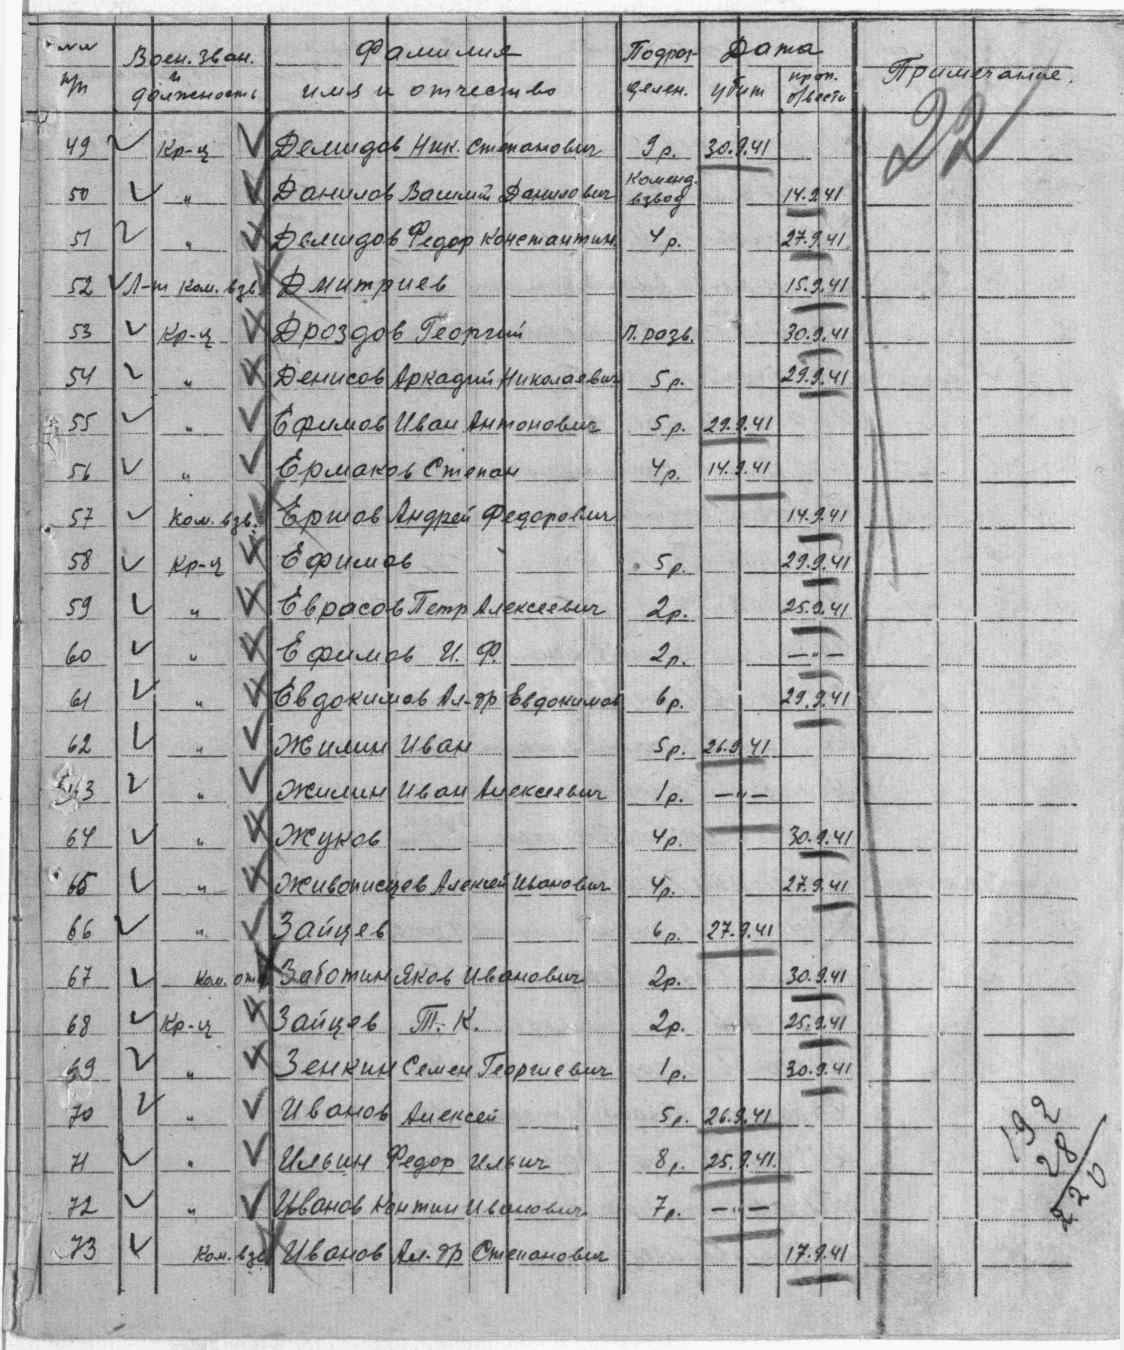 №№ п/п Воен. зван. и должность Фамилия имя и отчество Подраз- делен. Дата убит проп. б/вести Примечание.
22
49 Кр-ц Демидов Ник. Степанович 9р. 30.9.41
50 " Данилов Василий Данилович Коменд. взвод 14.9.41
51 " Демидов Федор Константин. 4р. 27.9.41
52 Л-т Ком. взв. Дмитриев 15.9.41
53 Кр-ц Дроздов Георгий П. разв. 30.9.41
54 " Денисов Аркадий Николаевич 5р. 29.9.41
55 " Ефимов Иван Антонович 5р. 29.9.41
56 " Ермаков Степан 4р. 14.9.41
57 Ком. взв. Ершов Андрей Федорович 14.9.41
58 Кр-ц Ефимов 5р. 29.9.41
59 " Еврасов Петр Алексеевич 2р. 25.9.41
60 " Ефимов И. Ф. 2р. —"—
61 " Евдокимов Ал-др Евдокимов 6р. 29.9.41
62 " Жилин Иван 5р. 26.9.41
63 " Жилин Иван Алексеевич 1р. —"—
64 " Жуков 4р. 30.9.41
65 " Живописцев Алексей Иванович 4р. 27.9.41
66 " Зайцев 6р. 27.9.41
67 Ком. отд Заботин Яков Иванович 2р. 30.9.41
68 Кр-ц Зайцев Т. К. 2р. 25.9.41
69 " Зенкин Семен Георгиевич 1р. 30.9.41
70 " Иванов Алексей 5р. 26.9.41
71 " Ильин Федор Ильич 8р. 25.9.41.
72 " Иванов Контин Иванович 7р. —"—
73 Ком. взв Иванов Ал-др Степанович 17.9.41
192
28
220